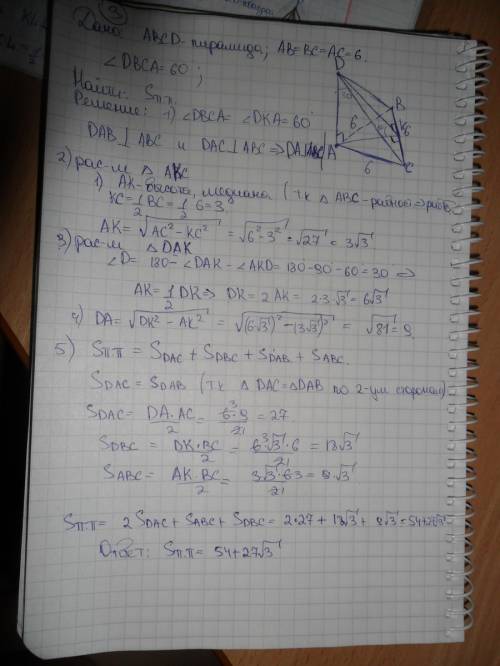 ③
Дано: ABCD - пирамида; AB=BC=AC=6.
∠DBCA=60°;
Найти: Sп.п.
Решение: 1) ∠DBCA = ∠DKA=60°
DAB⊥ABC и DAC⊥ABC ⇒ DA⊥ABC
D
B
A
C
6
6
6
2) рас-м △ AKC
1) AK-высота, медиана (тк △ ABC-равной ⇒
KC=1/2 BC=1/2·6=3.
AK=√(AC²-KC²) = √(6²-3²) = √27 = 3√3
3) рас-м △DAK
∠D= 180-∠DAK-∠AKD=180-90-60=30 ⇒
AK=1/2 DK ⇒ DK=2AK=2·3·√3=6√3
4) DA=√(DK²-AK²) = √((6√3)²-(3√3)²) = √81=9.
5) Sп.п = SDAC+SDBC+SDAB+SABC.
SDAC=SDAB (тк △ DAC=△DAB по 2-ум сторонам)
SDAC= DA·AC/2 = 6·9/2 = 27
SDBC = DK·BC/2 = 6√3·6/2 = 18√3
SABC= AK·BC/2 = 3√3·6/2 = 9√3
Sп.п= 2SDAC+SABC+SDBC=2·27+18√3+9√3=54+27√3
Ответ: Sп.п= 54+27√3